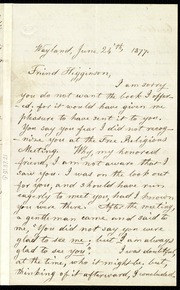 Wayland, June 24th, 1877.
Friend Higginson,
I am sorry
you do not want the book I offer-
-ed, for it would have given me
pleasure to have sent it to you.
You say you fear I did not recog-
nize you at the Free Religious
Meeting. Why, my honored
friend, I am not aware that I
saw you! I was on the look out
for you, and should have run
eagerly to meet you, had I known
you were there. After the meeting,
a gentleman came and said to
me, "You did not say you were
glad to see me; but I am always
glad to see you." I was doubtful,
at the time, who it might be; but,
thinking of it afterward, I concluded,